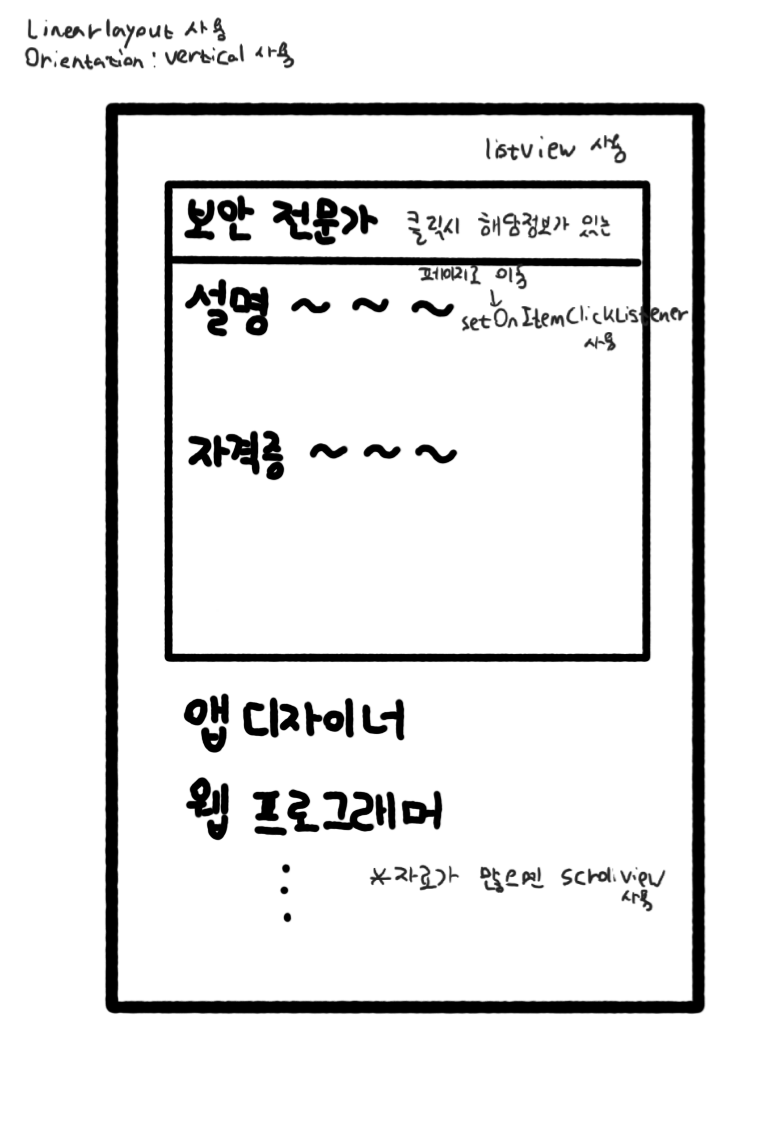 Linearlayout 사용
Orientation : vertical 사용
listview 사용
보안 전문가 클릭시 해당정보가 있는
페이지로 이동
↓
설명 ~ ~ ~ setOnItemClickListener
사용
자격증 ~ ~ ~
앱 디자이너
웹 프로그래머
⋮ *자료가 많으면 scrollview
사용